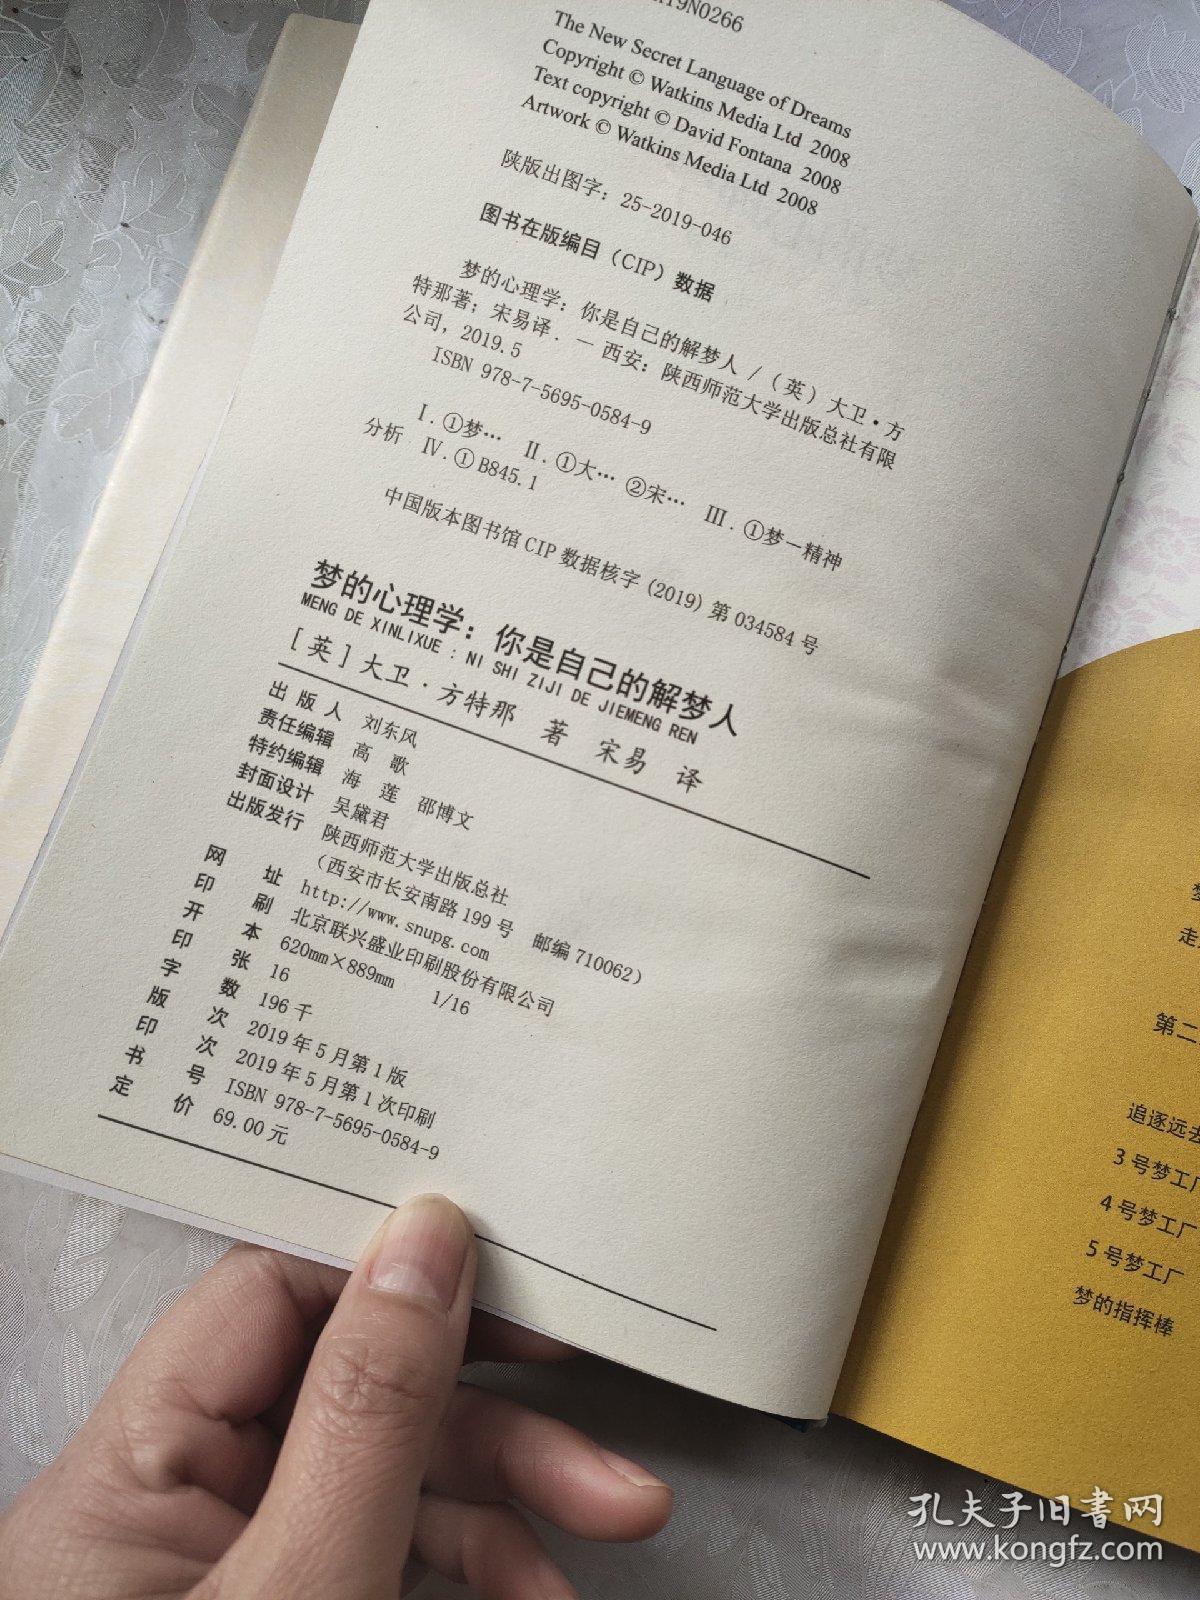 X19N0266
The New Secret Language of Dreams
Copyright © Watkins Media Ltd 2008
Text copyright © David Fontana 2008
Artwork © Watkins Media Ltd 2008
陕版出图字：25-2019-046
图书在版编目（CIP）数据
梦的心理学：你是自己的解梦人 /（英）大卫·方
特那著；宋易译. — 西安：陕西师范大学出版总社有限
公司，2019.5
ISBN 978-7-5695-0584-9
Ⅰ. ①梦… Ⅱ. ①大… ②宋… Ⅲ. ①梦－精神
分析 Ⅳ. ①B845.1
中国版本图书馆CIP数据核字（2019）第034584号
梦的心理学：你是自己的解梦人
MENG DE XINLIXUE：NI SHI ZIJI DE JIEMENG REN
［英］大卫·方特那 著 宋易 译
出版人 刘东风
责任编辑 高歌
特约编辑 海莲 邵博文
封面设计 吴黛君
出版发行 陕西师范大学出版总社
（西安市长安南路199号 邮编710062）
网址 http://www.snupg.com
印刷 北京联兴盛业印刷股份有限公司
开本 620mm×889mm 1/16
印张 16
字数 196千
版次 2019年5月第1版
印次 2019年5月第1次印刷
书号 ISBN 978-7-5695-0584-9
定价 69.00元
走
第二
追逐远去
3号梦工厂
4号梦工厂
5号梦工厂
梦的指挥棒
孔夫子旧书网
www.kongfz.com